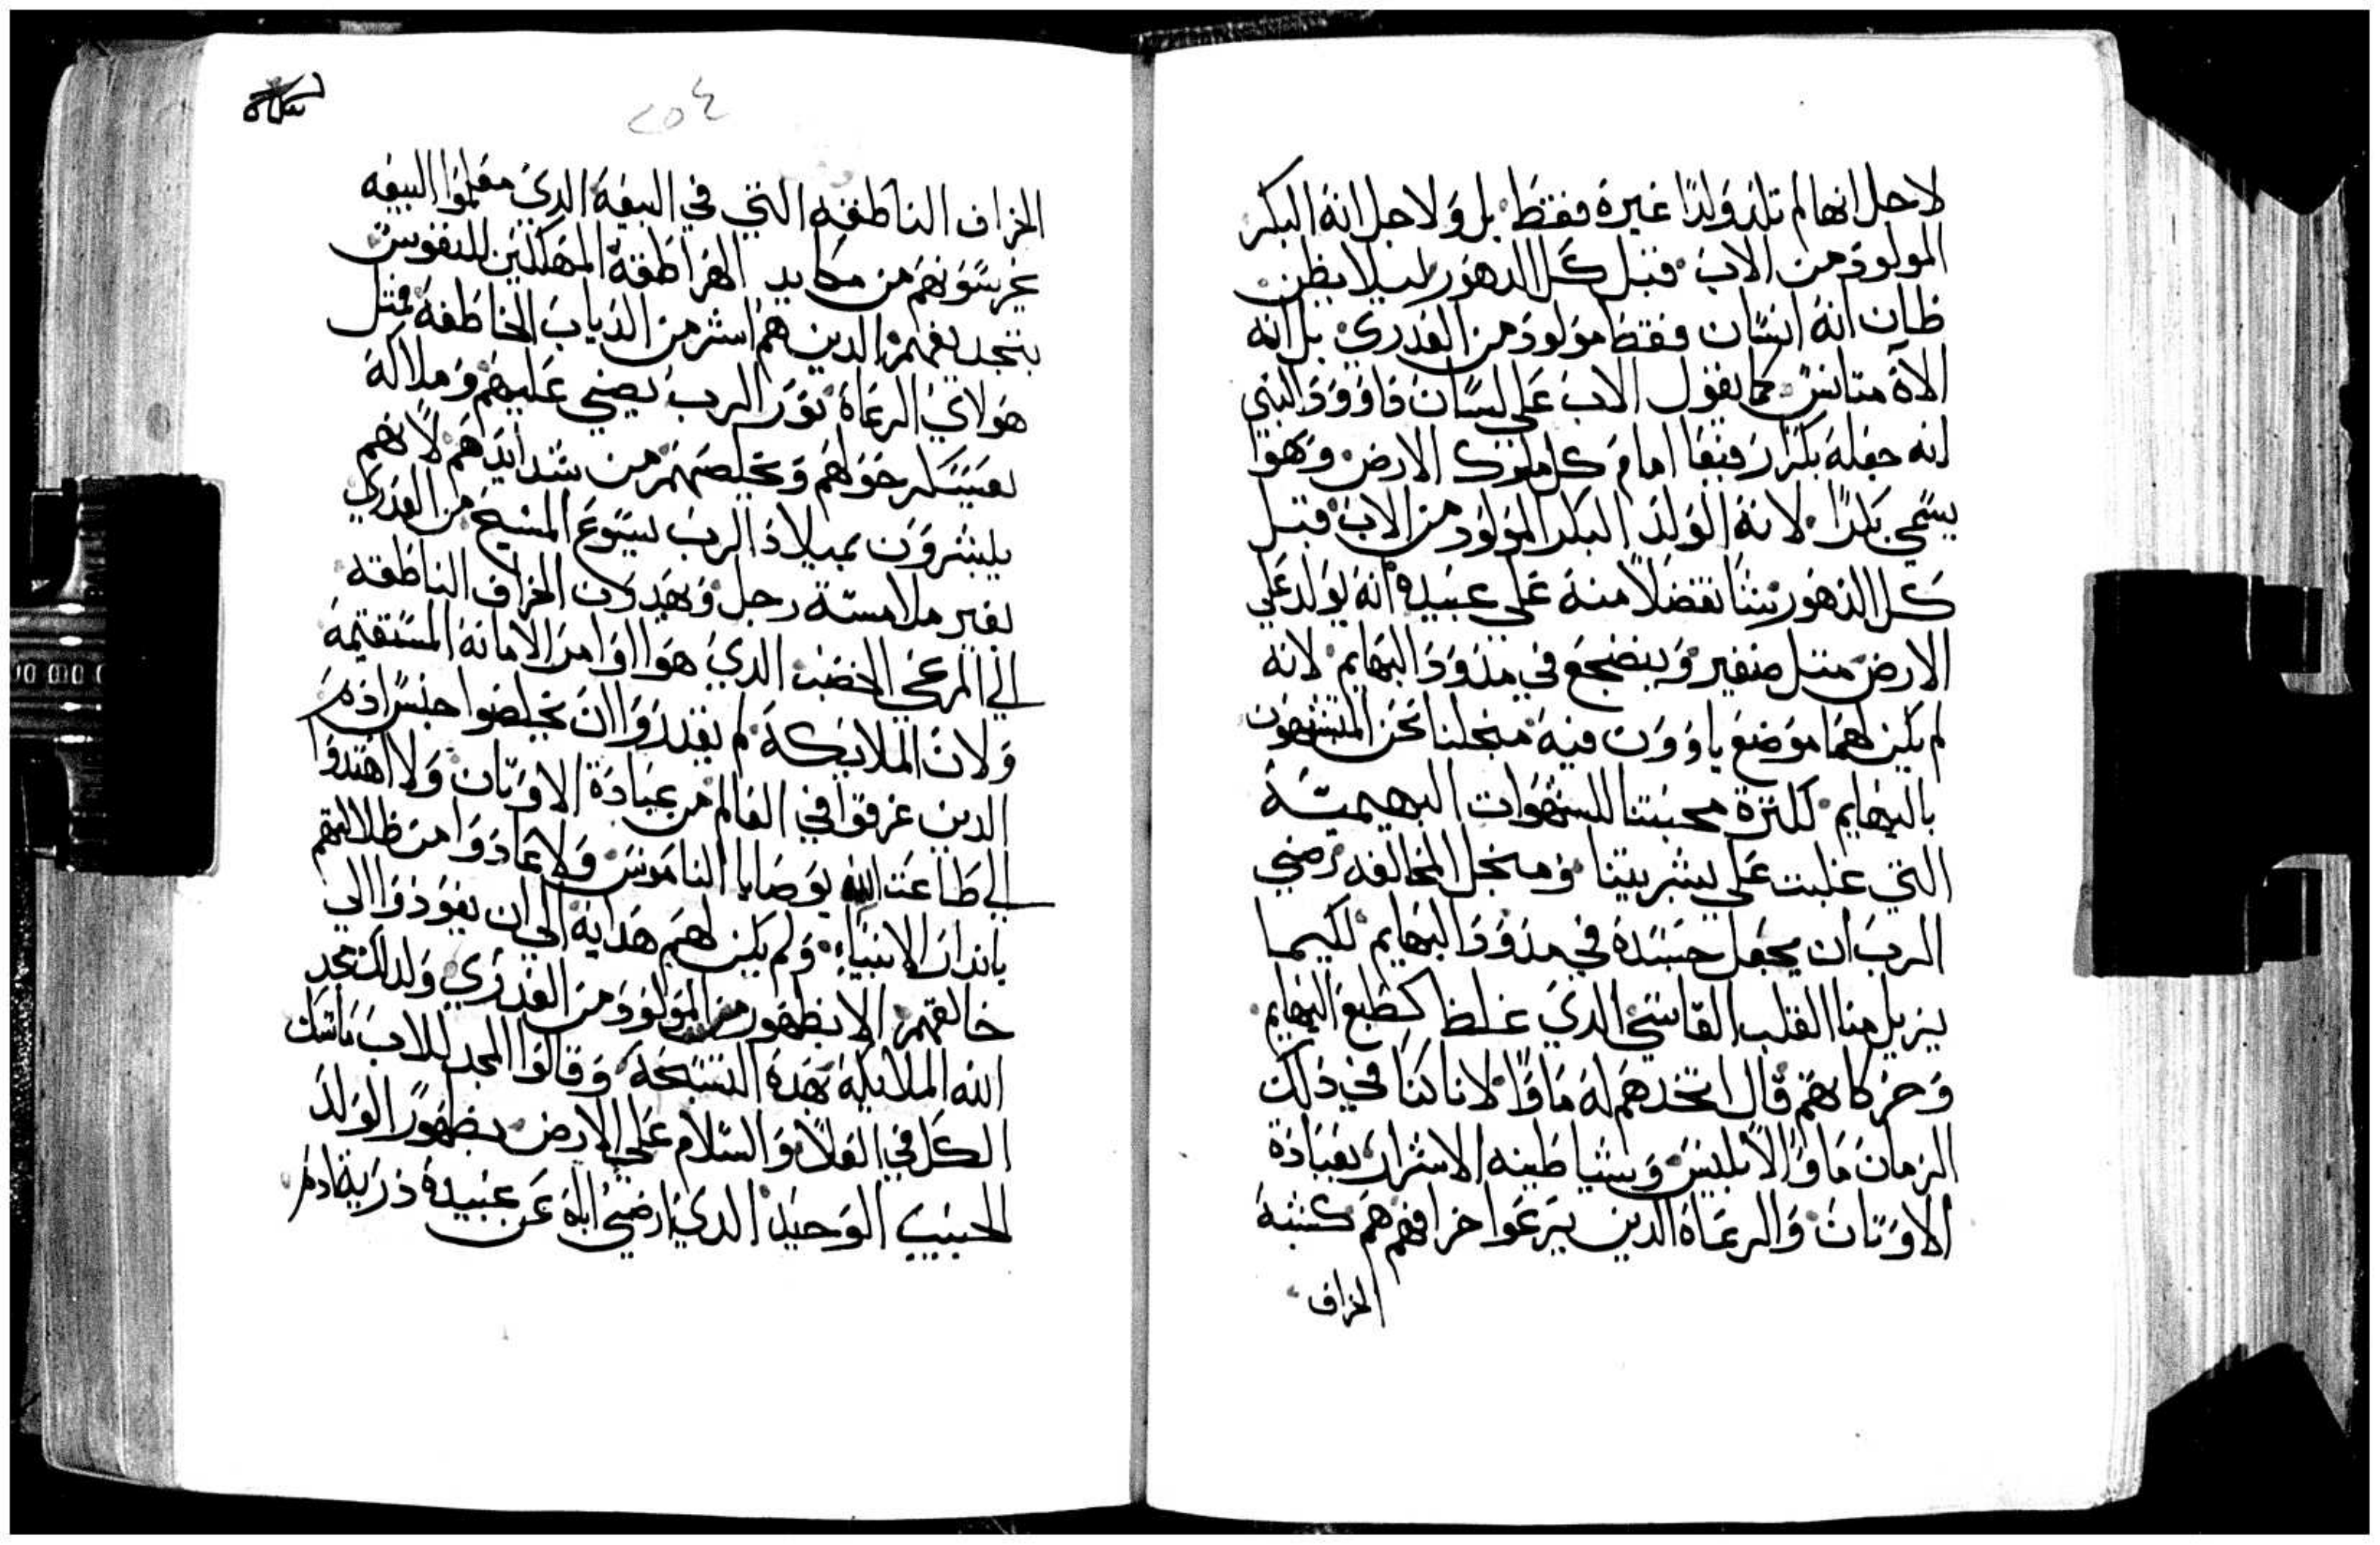 لاجل انها لم تلد ولدًا غيره فقط بل ولاجل انه البكر
المولود من الاب قبل كل الدهور ليلا يظن
ظان انه انسان فقط مولود من العدري بل انه
الاه متانس كما يقول الاب على لسان داوود النبي
انه جعله بكرا رفيعا امام كل ملوك الارض وهوا
يسمي بكرا لانه الولد البكر المولود من الاب قبل
كل الدهور تفضلا منه علي عبيده انه يولد علي
الارض متل صغير وينضجع في مدود البهايم لانه
لم يكن لهما موضع ياوون فيه منجلنا نحن المتشبهون
بالبهايم لكترة محبتنا للشهوات البهيميّة
التي غلبت علي بشريتنا ومنجل المخالفه رضي
الرب ان يجعل جسده في مدود البهايم لكيما
يزيل منا القلب القاسي الدي غلظ كطبع البهايم
وحركاتهم قال اتخدهم له ماوًا لانا كنا في دلك
الزمان ماوًا لابليس وشياطينه الاشرار بعبادة
الاوتان والرعاة الدين يرعوا خرافهم هم كشبه
الخراف
٢٥٤
الخراف الناطقه التي في البيعه الدي معلموا البيعه
يحرسونهم من مكايد الهراطقة المهلكين للنفوس
الدين هم اشر من الدياب الخاطفه فمتل
هولاي الرعاة نور الرب يضي عليهم وملاكه
يعسكر حولهم ويخلصهم من شدايدهم لانهم
يبشرون بميلاد الرب يسوع المسيح من العدري
بغير ملامسة رجل ويهدون الخراف الناطقه
الي المرعي الخضب الدي هوا اوامر الامانه المستقيمه
ولان الملايكة لم يقدروا ان يخلصوا جنس ادم
الدين غرقوا في العالم من عبادة الاوتان ولا اهتدوا
الي طاعت الله بوصايا الناموس ولا عادوا من ظلالتهم
باندار الانبياء ولم يكن لهم هدايه الي ان يعودوا الي
خالقهم الا بظهور المولود من العدري ولدلك مجد
الله الملايكه بهده التسبحه وقالوا المجد للاب ماسك
الكل في العلا والسلام علي الارض بظهور الولد
الحبيب الوحيد الدي ارضي ابيه عن عبيده درية ادم